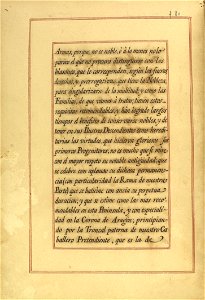 Armas, porque, no es noble, ó á lo menos no lo
parece el que no procura distinguirse con los
blasones, que le corresponden, segun los fueros,
leyes, y prerrogativas, que tiene la Nobleza,
para singularizarse de la multitud, y como las
Familias, de que vamos á tratar, tienen estas
requisitos recomendables, y han llegado largos
tiempos á beneficio de conservarse nobles, y de
tener en sus Ilustres Descendientes como heredi-
tarias las virtudes, que hicieron gloriosos sus
primeros Progenitores, no es mucho que se mire
con el mayor respeto su notable antiguedad, que
se celebre con aplauso su dichosa permanen-
cia (en particularidad la Rama de nuestro
Parte) que se bendice con ansia su perpetua
duracion, y que se estime como las mas reco-
mendables en esta Peninsula, y con especiali-
dad en la Corona de Aragon; principian-
do por la Troncal paterna de nuestro Ca-
ballero Pretendiente, que es la de